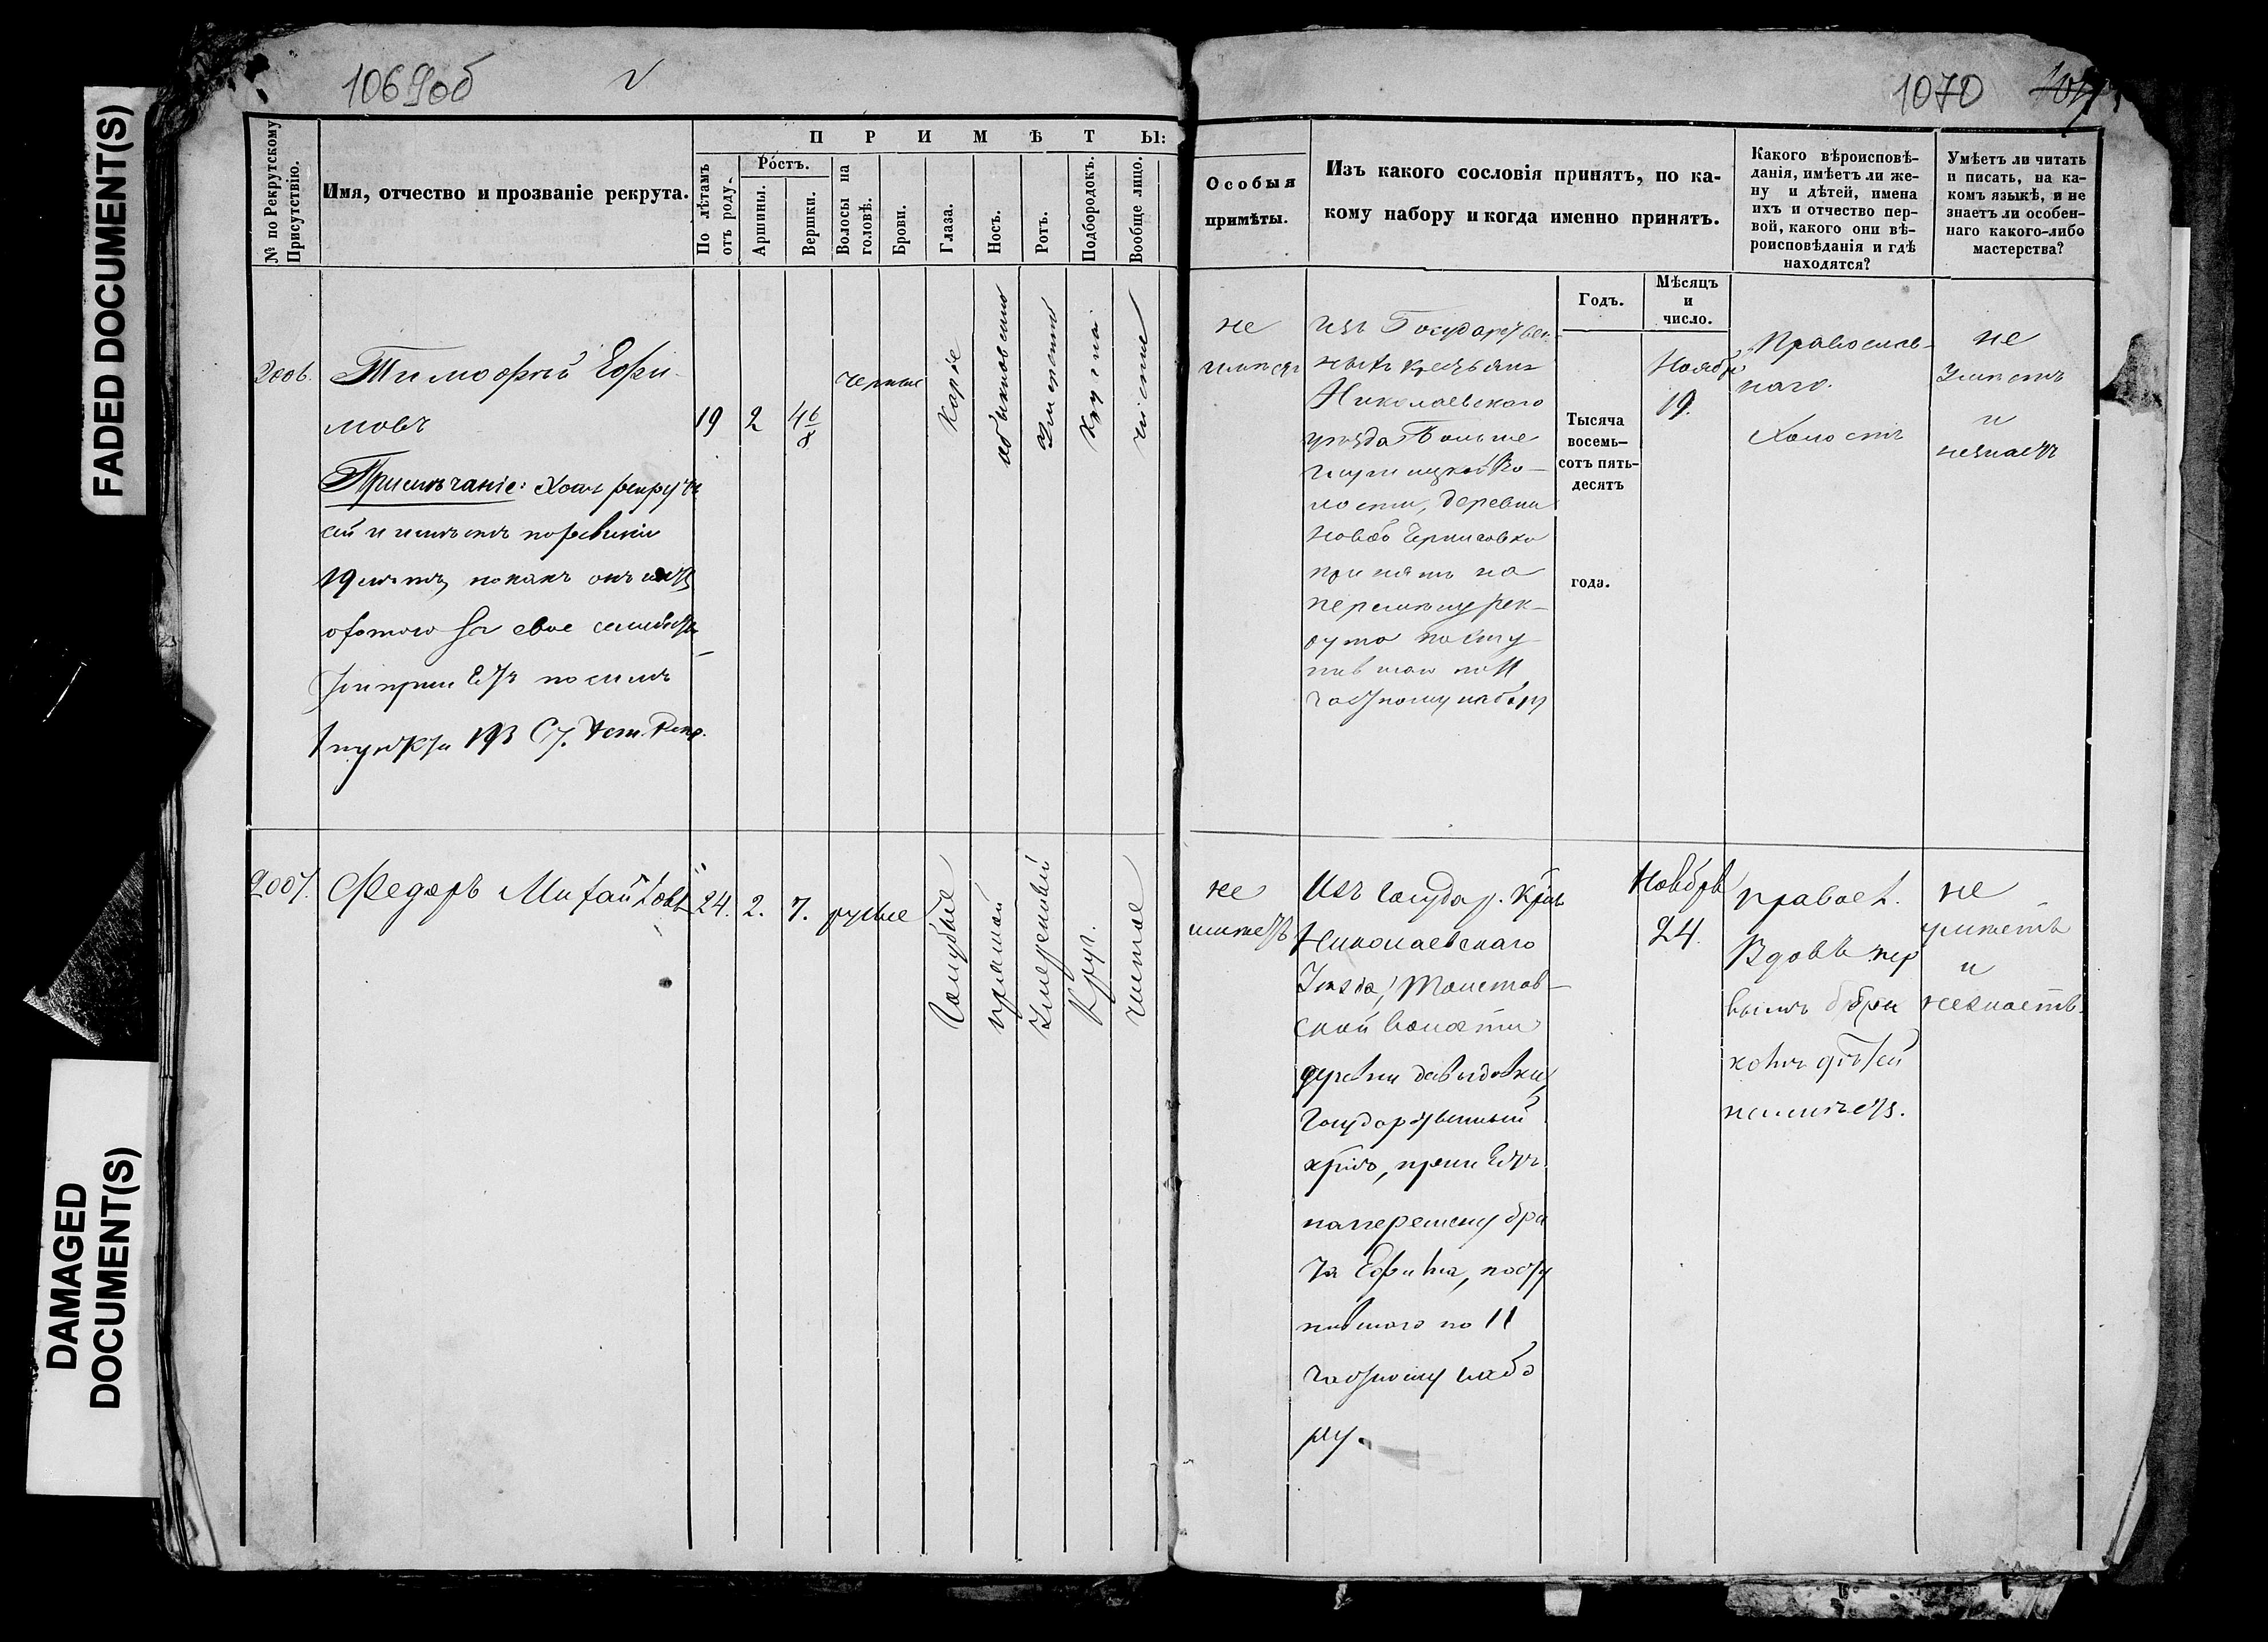 FADED DOCUMENT(S)
DAMAGED
DOCUMENT(S)
1069об
1070
№ по Рекрутскому
Присутствію.
Имя, отчество и прозваніе рекрута.
ПРИМѢТЫ:
По лѣтамъ
отъ роду.
Ростъ.
Аршины.
Вершки.
Волосы на
головѣ.
Брови.
Глаза.
Носъ.
Ротъ.
Подбородокъ.
Вообще лицо.
Особыя
примѣты.
Изъ какого сословія принятъ, по ка-
кому набору и когда именно принятъ.
Годъ.
Мѣсяцъ
и
число.
Какого вѣроисповѣ-
данія, имѣетъ ли же-
ну и дѣтей, имена
ихъ и отчество пер-
вой, какого они вѣ-
роисповѣданія и гдѣ
находятся?
Умѣетъ ли читать
и писать, на ка-
комъ языкѣ, и не
знаетъ ли особен-
наго какого-либо
мастерства?
2006.
Тимофѣй Ефи-
мовъ
Примѣчаніе: Хотя рекрутъ
сей и имѣетъ по ревизіи
19 лѣтъ, но какъ онъ
охотою за свое семейство
по силѣ
1 пункта 193 Ст. Уст. Рекр.
19
2
4 6/8
черные
Каріе
обыкновенный
Умѣренный
Кругл.
чистое
не
имѣетъ
изъ Государствен-
ныхъ крестьянъ
Николаевского
уѣзда Больше
Во-
лости, деревни
Новой
принятъ на
перемѣну рек-
рута посту-
пившаго по 11
частному набору
Тысяча
восемь-
сотъ пять-
десятъ
года.
Ноября
19.
Православ-
наго.
Холостъ
не
Умѣетъ
и
незнаетъ
2007.
Федоръ Михайловъ
24.
2.
7.
русые
Голубые
прямой
Умѣренный
Кругл.
Чистое
не
имѣетъ
Изъ Государ. Крть.
Николаевскаго
Уѣзда, Толстов-
ской волости
деревни Давыдовки,
Государственный
на перемену бра
та Ефима, посту
пившаго по 11
частному набо
ру.
Ноября
24.
Правосл.
Вдовъ пер
вымъ бра
комъ дѣтей
неимѣетъ.
не
умѣетъ
и
незнаетъ.